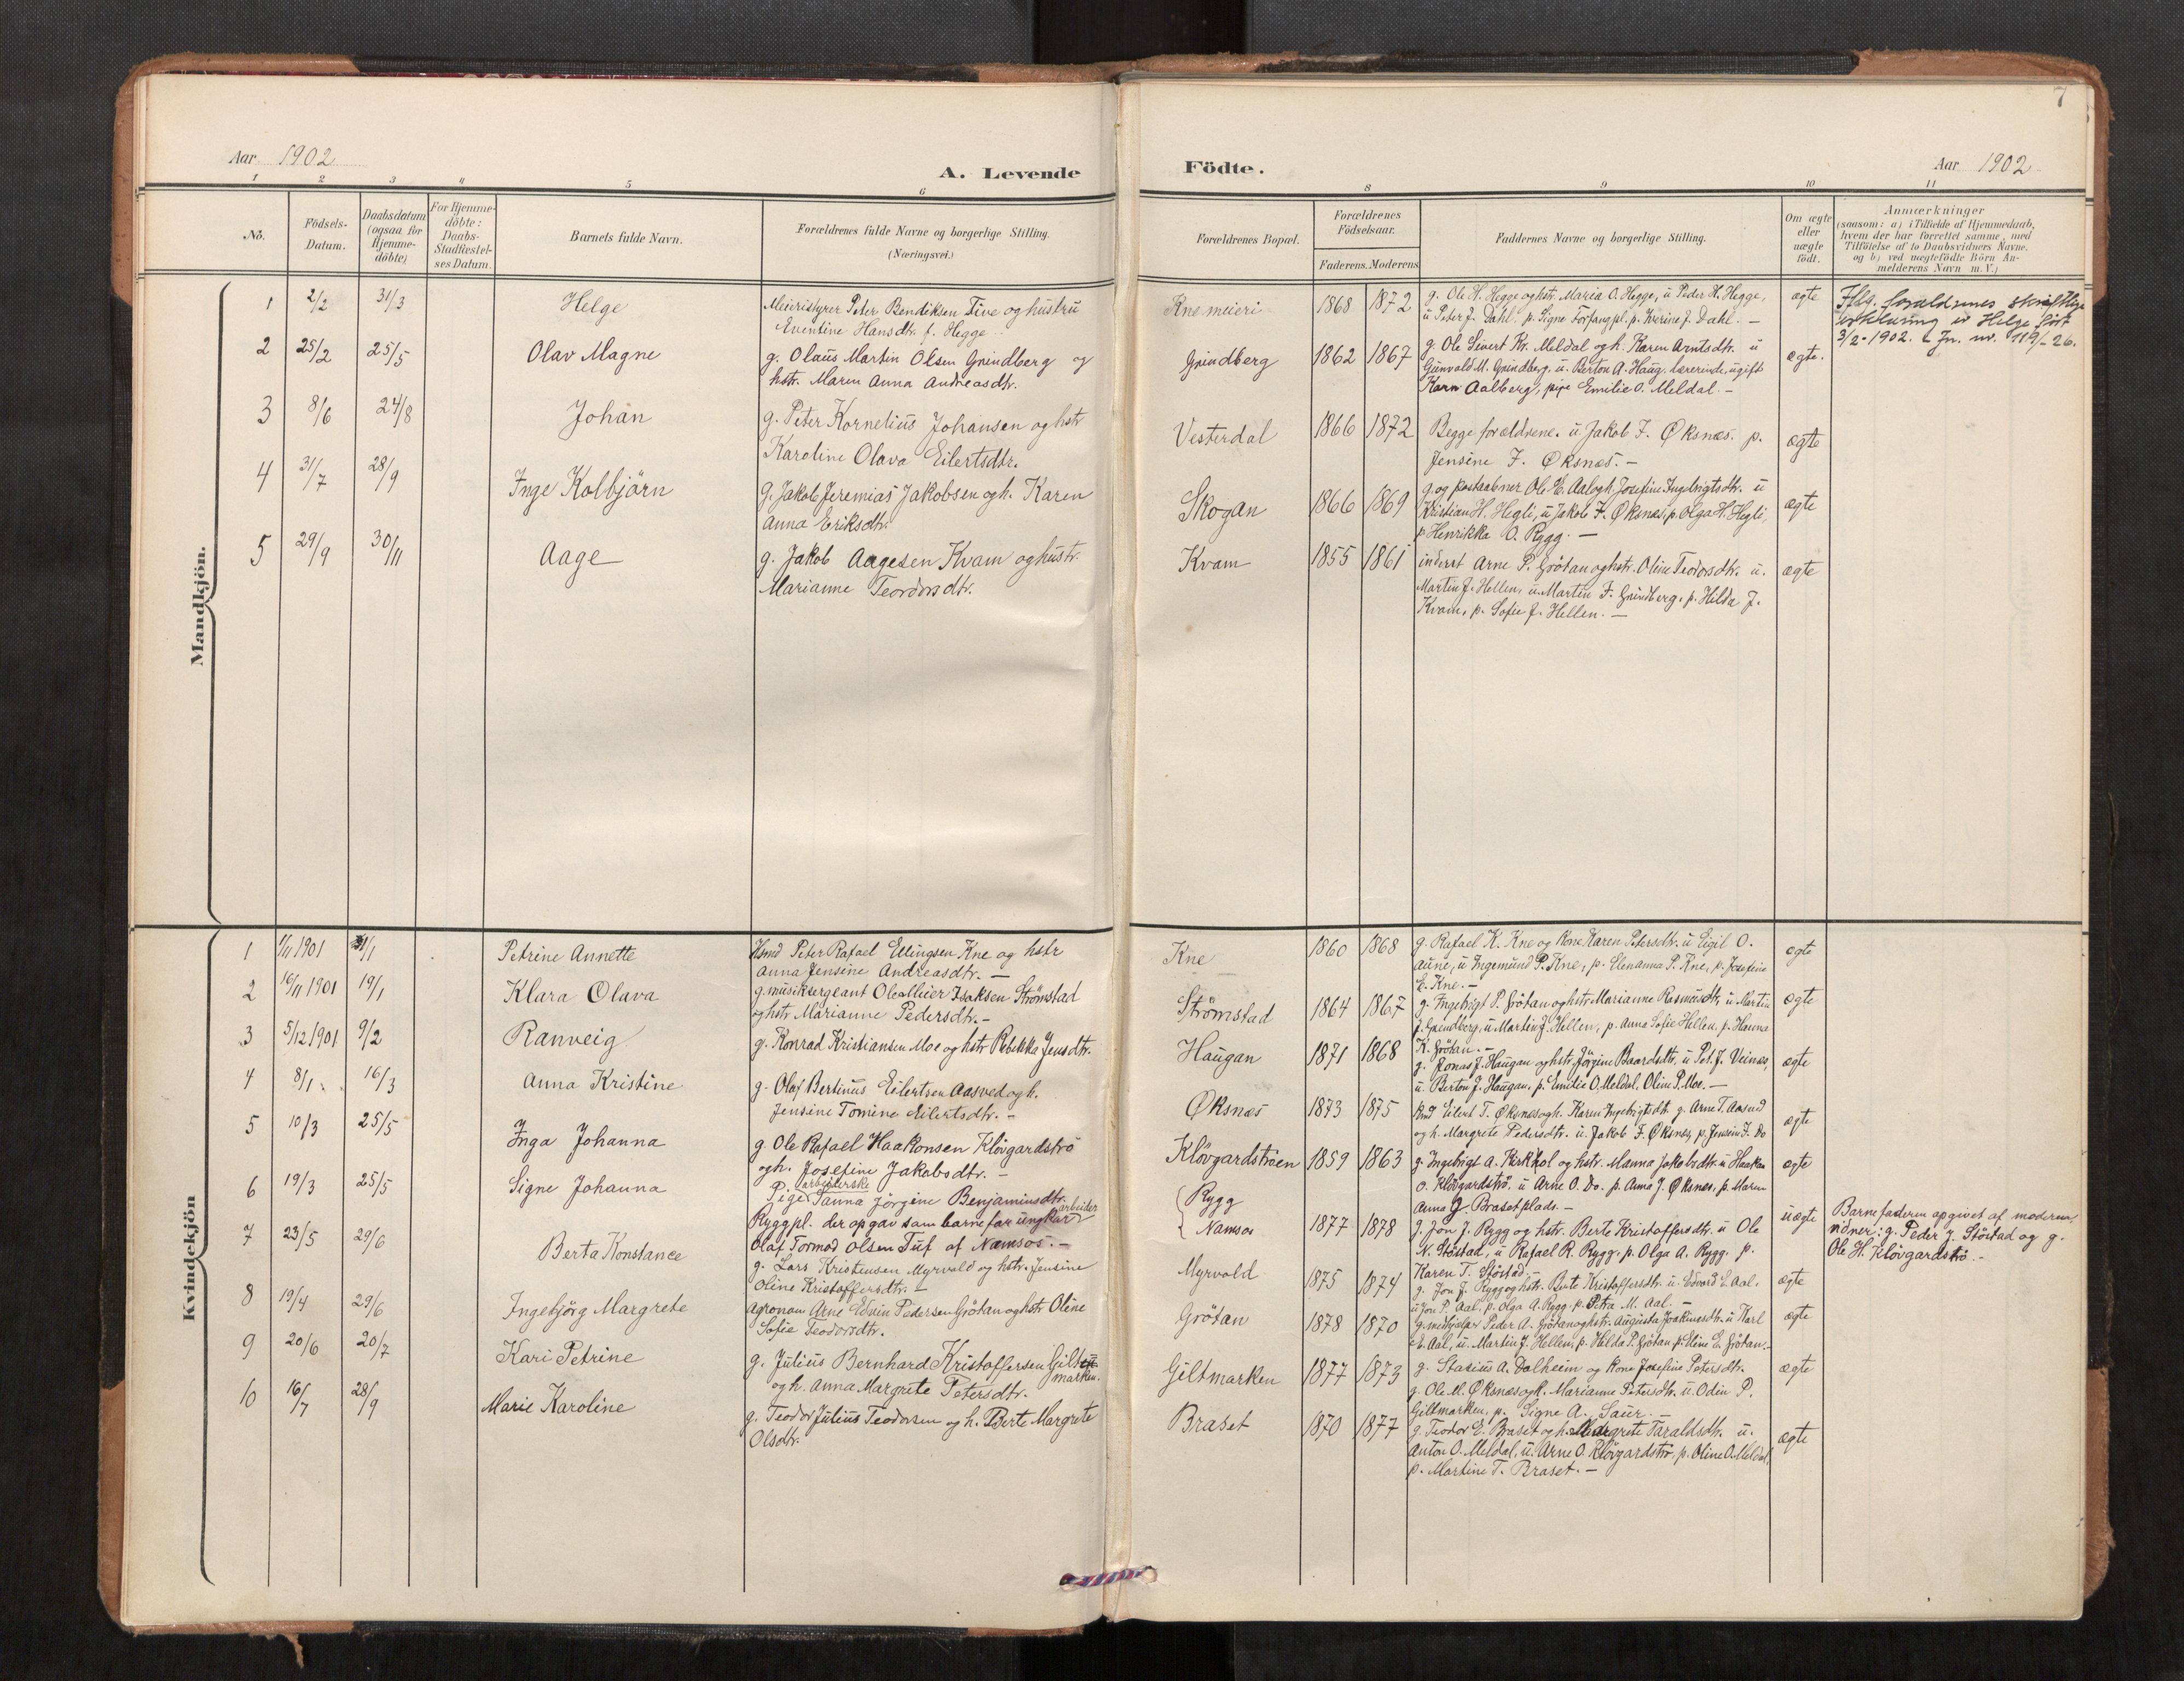 7
Aar 1902
A. Levende
Födte.
Aar 1902
1 2 3 4 5 6 8 9 10 11
No.
Födsels-
Datum.
Daabsdatum
(ogsaa for
Hjemme-
döbte)
For Hjemme-
döbte:
Daabs-
Stadfæstel-
ses Datum.
Barnets fulde Navn.
Forældrenes fulde Navne og borgerlige Stilling.
(Næringsvei.)
Forældrenes Bopæl.
Forældrenes
Födselsaar.
Faderens. Moderens
Faddernes Navne og borgerlige Stilling.
Om ægte
eller
uægte
födt.
Anmærkninger
(saasom: a) i Tilfælde af Hjemmedaab,
hvem der har forrettet samme, med
Tilföielse af to Daabsvidners Navne.
og b) ved uægtefödte Börn An-
melderens Navn m. V.)
Mandkjön.
1 2/2 31/3 Helge
Meieristyrer Peter Bendiksen Five og hustru
Eventine Hansdtr. f. Hegge
Kne meieri 1868 1872
g. Ole H. Hegge og hstr. Maria O. Hegge, u Peder H. Hegge,
u Peter J. Dahl. p. Signe Forfang pl. p. Iverine J. Dahl. –
ægte
Iflg. forældrenes skriftlige
erklæring er Helge født
3/2-1902. Jn. nr. 119/-26.
2 25/2 25/5 Olav Magne
g. Olaus Martin Olsen Grindberg og
hstr. Maren Anna Andreasdtr.
Grindberg 1862 1867
g. Ole Sivert Kr. Meldal og h. Karen Arntsdtr. u
Gunvald M. Grindberg. u. Berton A. Haug. lærerinde, ugift
Karn Aalberg, pige Emilie O. Meldal. –
ægte.
3 8/6 24/8 Johan
g. Peter Kornelius Johansen og hstr
Karoline Olava Eilertsdtr.
Vesterdal 1866 1872
Begge forældrene. u Jakob F. Øksnæs. p.
Jensine F. Øksnes. –
ægte
4 31/7 28/9 Inge Kolbjörn
g. Jakob Jeremias Jakobsen og h. Karen
Anna Eriksdtr.
Skogan 1866 1869
g. og postaabner Ole E. Aal og h. Josefine Ingebrigtsdtr. u
Kristian H. Hegli, u Jakob F. Øksnes, p. Olga H. Hegli,
p Henrikka O. Rygg. –
ægte
5 29/9 30/11 Aage
g. Jakob Aagesen Kvam og hustr.
Marianne Teordorsdtr.
Kvam 1855 1861
inderst Arne P. Grötan og hstr. Oline Teodorsdtr. u.
Martin J. Hellem, u. Martin F. Grindberg. p. Hilda J.
Kvam, p. Sofie J. Hellem. –
ægte
Kvindekjön
1 1/11 1901 1/1 Petrine Annette
Hsmd Peter Rafael Ellingsen Kne og hstr
Anna Jensine Andreasdtr. –
Kne 1860 1868
g. Rafael K. Kne og Kone Karen Petersdtr. u Eigil O.
Aune, u Ingemund P. Kne, p. Elenanna P. Kne, p. Josefine
E. Kne. –
ægte
2 16/11 1901 19/1 Klara Olava
g. musiksergeant Ole Meier Isaksen Strömstad
og hstr Marianne Pedersdtr. –
Strömstad 1864 1867
g. Ingebrigt P. Grötan og hstr Marianne Rasmusdtr, u Martin
J. Grindberg, u Martin J. Hellem, p. Anna Sofie Hellem, p. Hanna
K. Grötan. –
ægte
3 5/12 1901 9/2 Ranveig
g. Konrad Kristiansen Moe og hstr Rebekka Jensdtr.
Haugan 1871 1868
g. Jonas J. Haugan og hstr Jörgine Baardsdtr, u Pet. J. Veines,
u. Berton J. Haugan, p. Emilie O. Meldal, Oline P. Moe. –
ægte
4 8/1 „ 16/3 Anna Kristine
g. Olaf Bertinus Eilertsen Aasved og h.
Jensine Tomine Eilertsdtr. –
Øksnæs 1873 1875
Kmd Eilert T. Øksnes og h. Karen Ingebrigtsdtr. g. Arne T. Aasved
og h. Margrete Pedersdtr. u. Jakob F. Øksnes, p. Jensine F. Do
ægte
5 10/3 25/5 Inga Johanna
g. Ole Rafael Haakonsen Klövgardströ
og h. Josefine Jakobsdtr. –
Klövgardströen 1859 1863
g. Ingebrigt A. Kirkhol og hstr. Manna Jakobsdtr. u Haakon
O. Klövgardströ. u Arne O. Do. p. Anna J. Øksnes, p. Maren
Anna J. Brasetplads. –
ægte
6 19/3 25/5 Signe Johanna
arbeiderske
Pige Janna Jörgine Benjaminsdtr.
Ryggpl. der opgav som barnefar ungkar arbeider
Olaf Tormod Olsen Tuf af Namsos. –
Rygg
Namsos 1877 1878
g. Jon J. Rygg og hstr. Berte Kristoffersdtr. u Ole
N. Stöstad, u Rafael R. Rygg. p. Olga A. Rygg. p.
Karen T. Stöstad. –
uægte
Barnefaderen opgivet af moderen,
vidner: g. Peder J. Stöstad og g.
Ole H. Klövgardströ. –
7 23/5 29/6 Berta Konstance
g. Lars Kristensen Myrvold og hstr. Jensine
Oline Kristoffersdtr. –
Myrvold 1875 1874
g. Jon J. Rygg og hstr. Berte Kristoffersdtr. u. Edvard E. Aal.
u Jon P. Aal, p. Olga A. Rygg, p. Petra M. Aal. –
ægte
8 19/4 29/6 Ingebjörg Margrete
Agronom Arne Edvin Pedersen Grötan og hstr Oline
Sofie Teodorsdtr.
Grötan 1878 1870
g. medhjelper Peder A. Grötan og hstr. Augusta Joakimsdtr. u Karl
E. Aal, u. Martin J. Hellem, p. Hilda P. Grötan, p. Eline E. Grötan. –
ægte
9 20/6 20/7 Kari Petrine
g. Julius Bernhard Kristoffersen Gilt
marken.
og h. Anna Margrete Petersdtr.
Giltmarken 1877 1873
g. Stasius A. Dalheim og kone Josefine Petersdtr.
g. Ole M. Øksnes og h. Marianne Petersdtr. u. Odin P.
Giltmarken, p. Signe A. Saur. –
ægte
10 16/7 28/9 Marie Karoline
g. Teodor Julius Teodorsen og h. Berte Margrete
Olsdtr.
Braset 1870 1877
g. Teodor E. Braset og h. Margrete Taraldsdtr. u.
Anton O. Meldal, u. Arne O. Klövgardströ, p. Oline O. Meldal,
p. Martine T. Braset. –
ægte